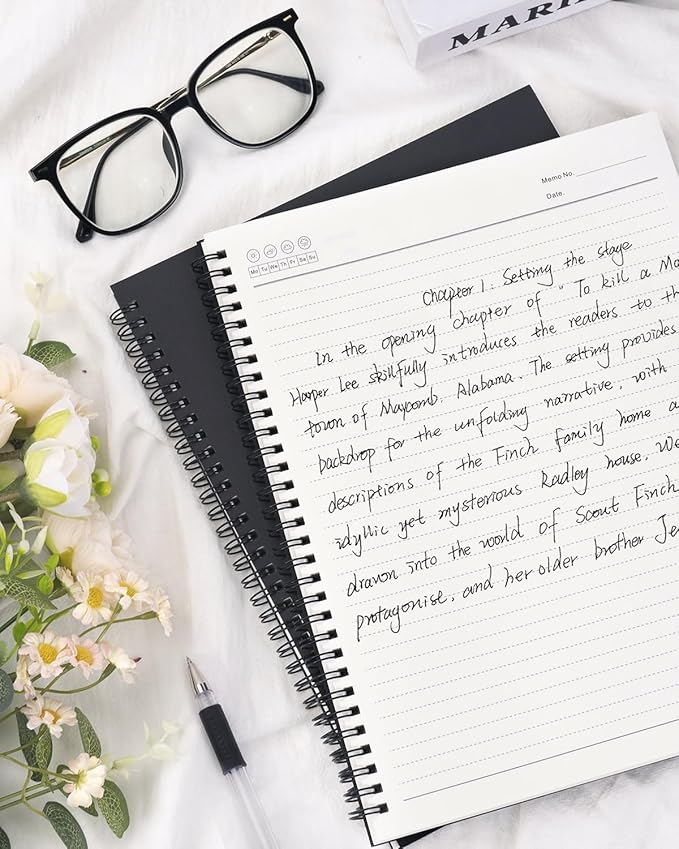 MARI
Memo No.
Date.
Mo Tu We Th Fr Sa Su
Chapter 1: Setting the stage
In the opening chapter of " To kill a Mo
Harper Lee skillfully introduces the readers to th
town of Maycomb, Alabama. The setting provides
backdrop for the unfolding narrative, with
descriptions of the Finch family home a
idyllic yet mysterious Radley house. We
drawn into the world of Scout Finch
protagonise, and her older brother Je